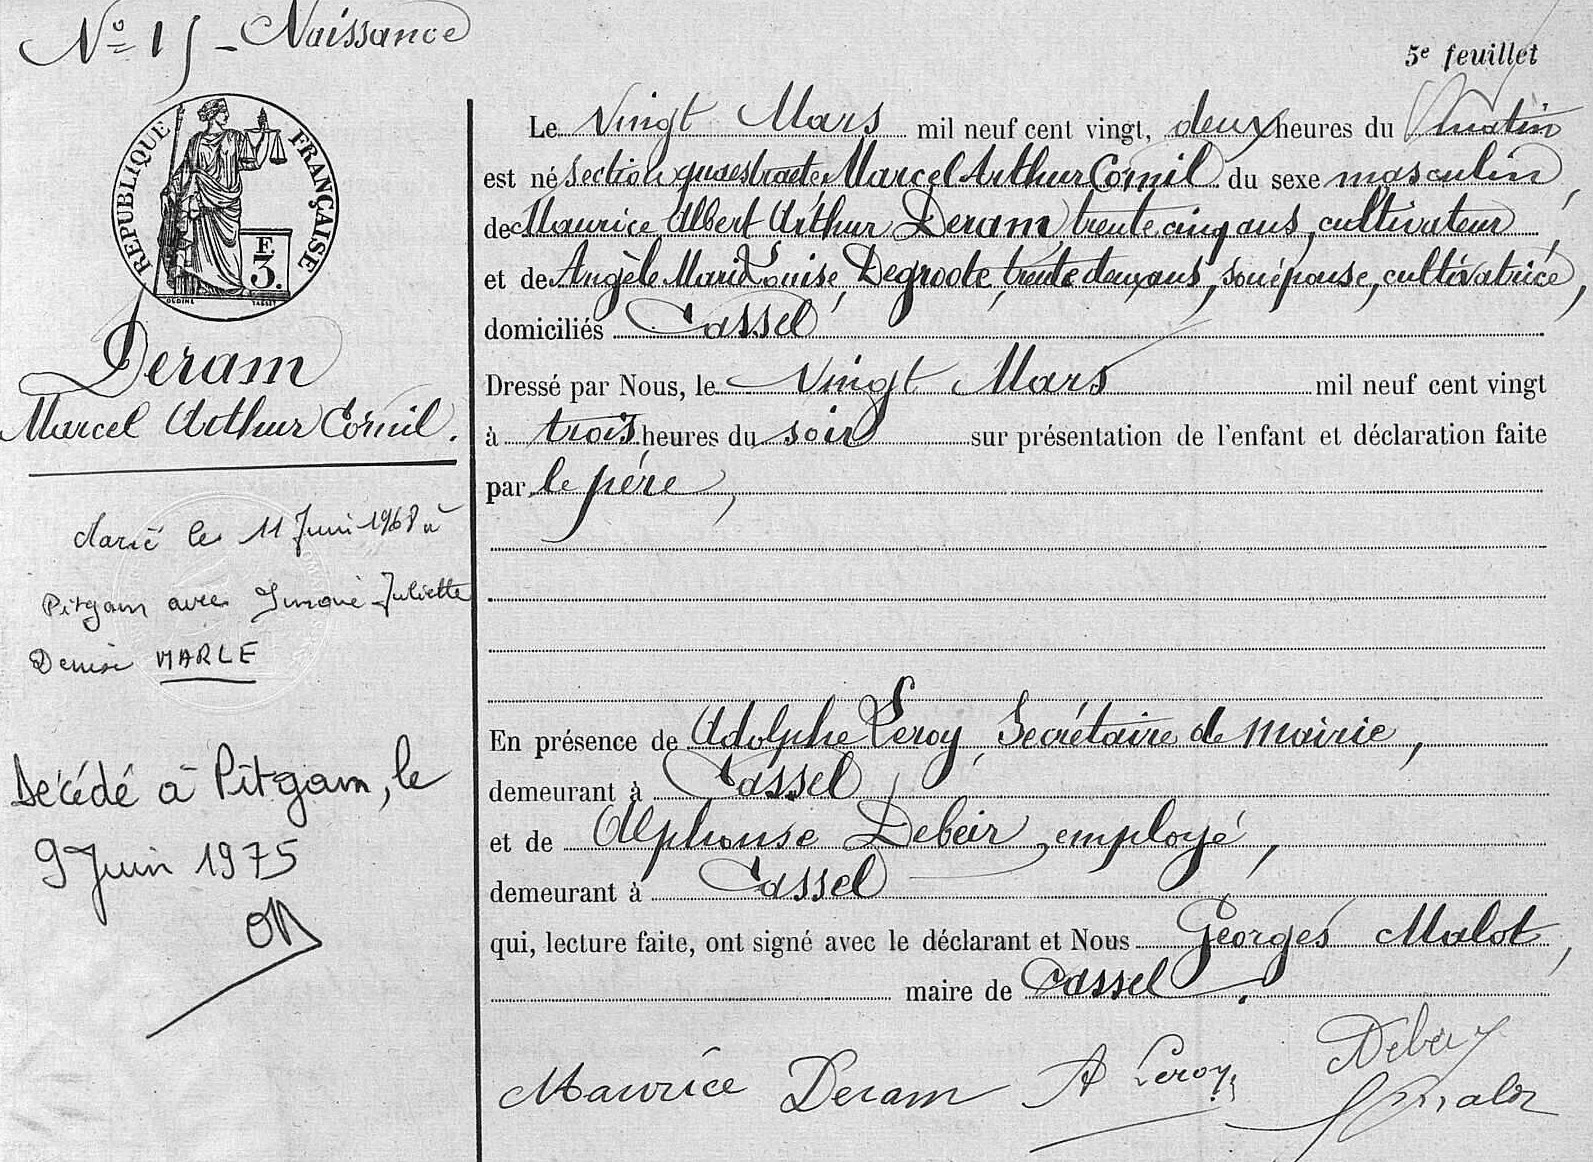 N° 15 - Naissance
5e feuillet
REPUBLIQUE FRANÇAISE
F
3.
OUDINÉ TASSET
Deram
Marcel Arthur Cornil.
Marié le 11 Juin 1968 à
Pitgam avec Simone Juliette
Denise MARLE
Décédé à Pitgam, le
9 Juin 1975
Le Vingt Mars mil neuf cent vingt, deux heures du matin
est né section Marcel Arthur Cornil du sexe masculin,
de Maurice Albert Arthur Deram, trente cinq ans, cultivateur
et de Angèle Marie Louise, Degroote, trente deux ans, son épouse, cultivatrice,
domiciliés Cassel
Dressé par Nous, le Vingt Mars mil neuf cent vingt
à trois heures du soir sur présentation de l'enfant et déclaration faite
par le père,
En présence de Adolphe Leroy, Secrétaire de Mairie,
demeurant à Cassel
et de Alphonse Debeir, employé,
demeurant à Cassel
qui, lecture faite, ont signé avec le déclarant et Nous Georges Malot,
maire de Cassel.
Maurice Deram A Leroy Debeir
GMalot